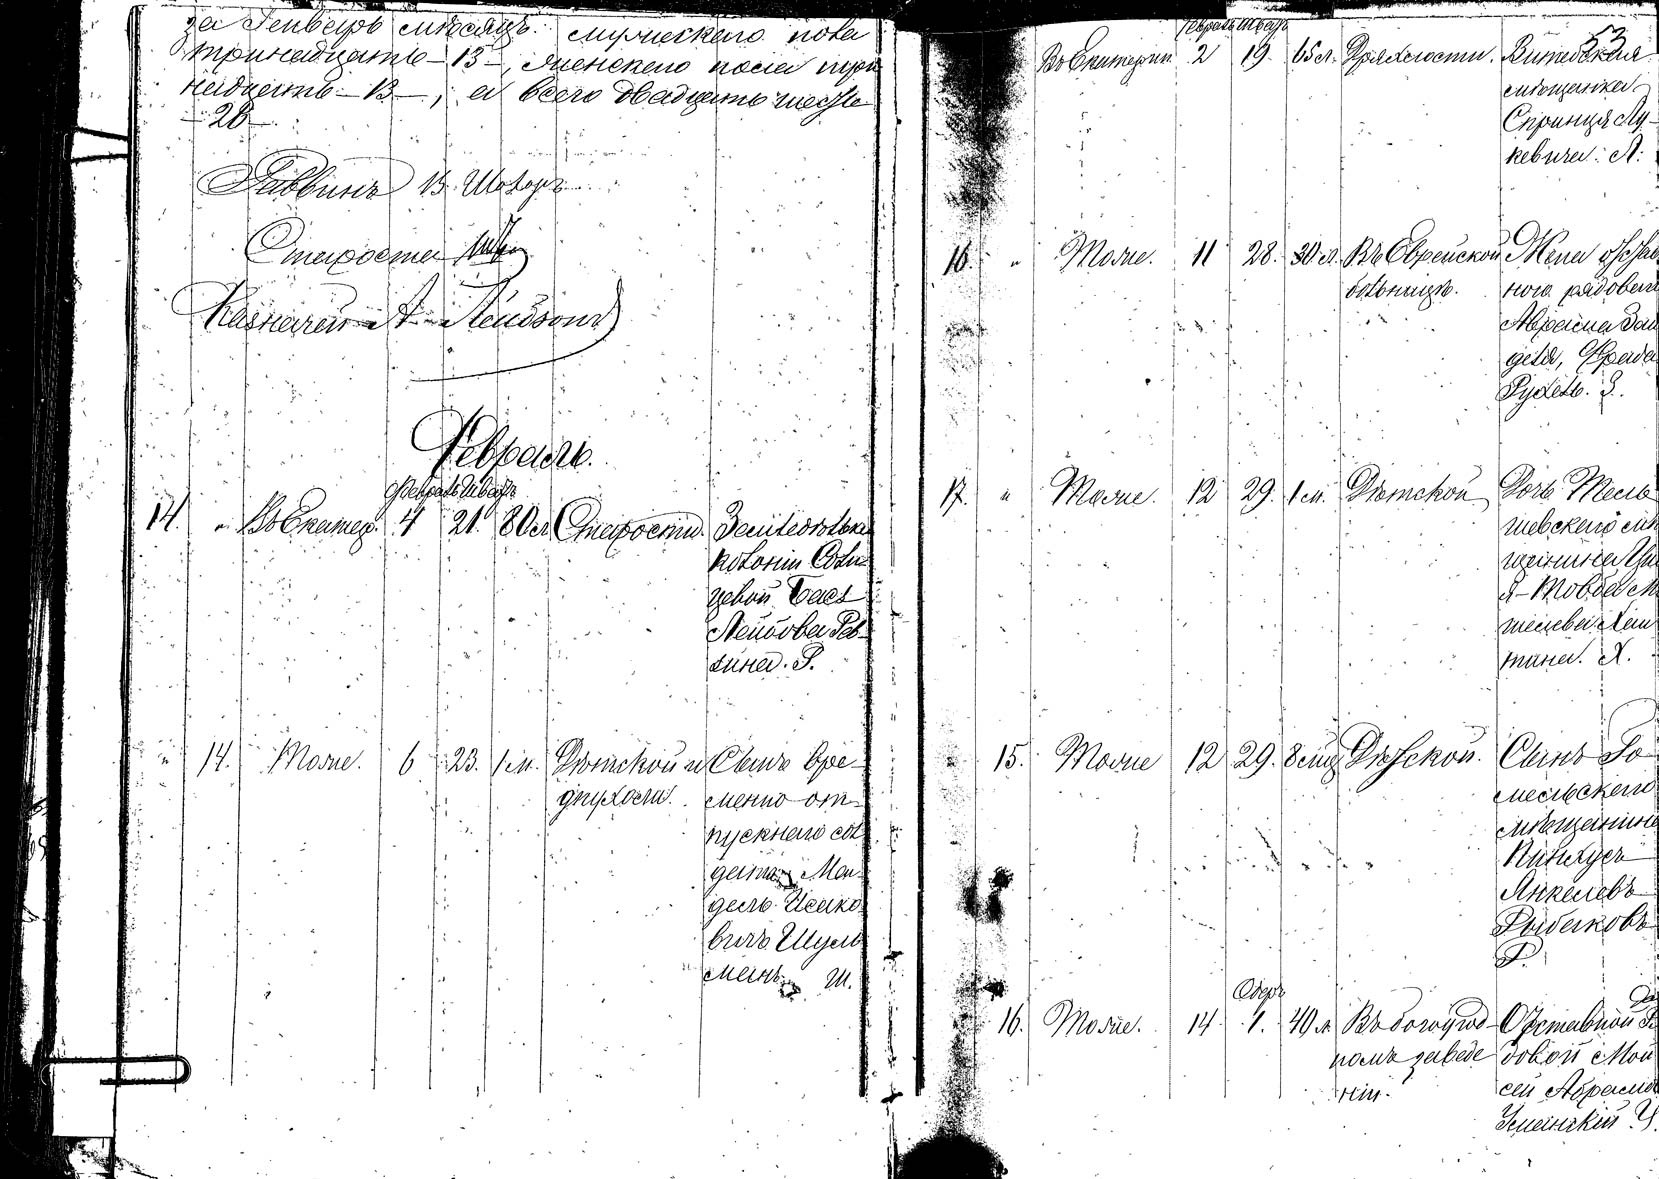 за Генварь мѣсяцъ: мужескаго пола
тринадцать - 13 -, женскаго пола три
надцать - 13 -, а всего двадцать шесть
- 26 -
Раввинъ В. Шоторъ
Староста
Казначей А. Лейбзонъ
Февраль.
Февраль Шватъ
14 " Въ Екатер. 4 21. 80 л. Старости. Земледѣлька
колоніи Сол-
цевой Бася
Лейбова Рев-
зина. Р.
" 14. Тоже. 6 23. 1 м. Дѣтской и Сынъ вре-
духоты. менно от-
пускнаго сол
дата Мен-
дель Исако
вичъ Шуль
манъ Ш.
53
Февраль Шватъ
Въ Екатерин. 2 19. 65 л. Дряхлости. Витебская
мѣщанка
Спринця Лу-
кевича. Л.
16. " Тоже. 11 28. 30 л. Въ Еврейской Жена отстав
больницѣ. ного рядоваго
Абрама Зай
деля, Фрада
Рухель. З.
17. " Тоже. 12 29. 1 м. Дѣтской Дочь Тель
шевскаго мѣ
щанина
я-Товба М
шелева Хей
мана. Х.
15. Тоже 12 29. 8 мѣц Дѣтской. Сынъ Го
мельскаго
мѣщанина
Пинхусъ
Янкелевъ
Рыбаковъ
Р.
Одеръ
16. Тоже. 14 1. 40 л. Въ богоугод- Отставной Ря
номъ заведе довой Мои
ніи. сей Абрамов
Уманскій У.